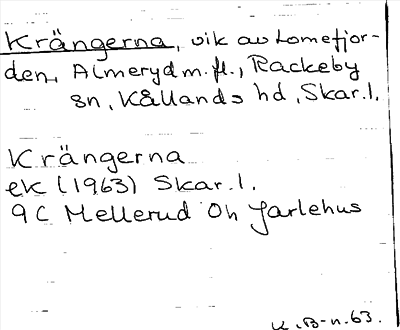 Krängerna, vik av Lomefjor-
den, Almeryd m.fl., Rackeby
sn, Kållands hd, Skar.l.
Krängerna
ek (1963) Skar.l.
9C Mellerud Öh Jarlehus
K.B-n.63.